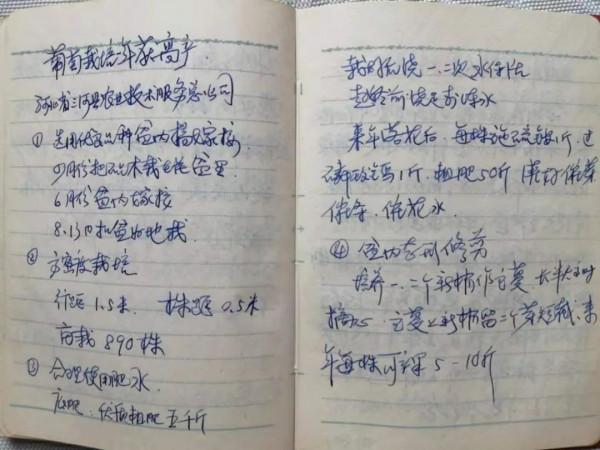 葡萄栽培年获高产
河北省三河县农业技术服务总公司
① 选用优良品种 盆内提早嫁接
4月份把砧木栽在盆里
6月份盆内嫁接
8.15日扣盆如地栽
② 高密度栽培
行距1.5米 株距0.5米
亩栽890株
③ 合理使用肥水
底肥、优质粗肥五千斤
栽时后浇一、二次水保活
越冬前浇足封冻水
来年落花后,每株施硫铵1斤,过
磷酸钙1斤,粗肥50斤 浇好催芽
催条、催花水
④ 盆内及时修剪
培养一、二个新梢作主蔓 长半大时
摘心 主蔓上新梢留二个芽短截,来
年每株可课5-10斤